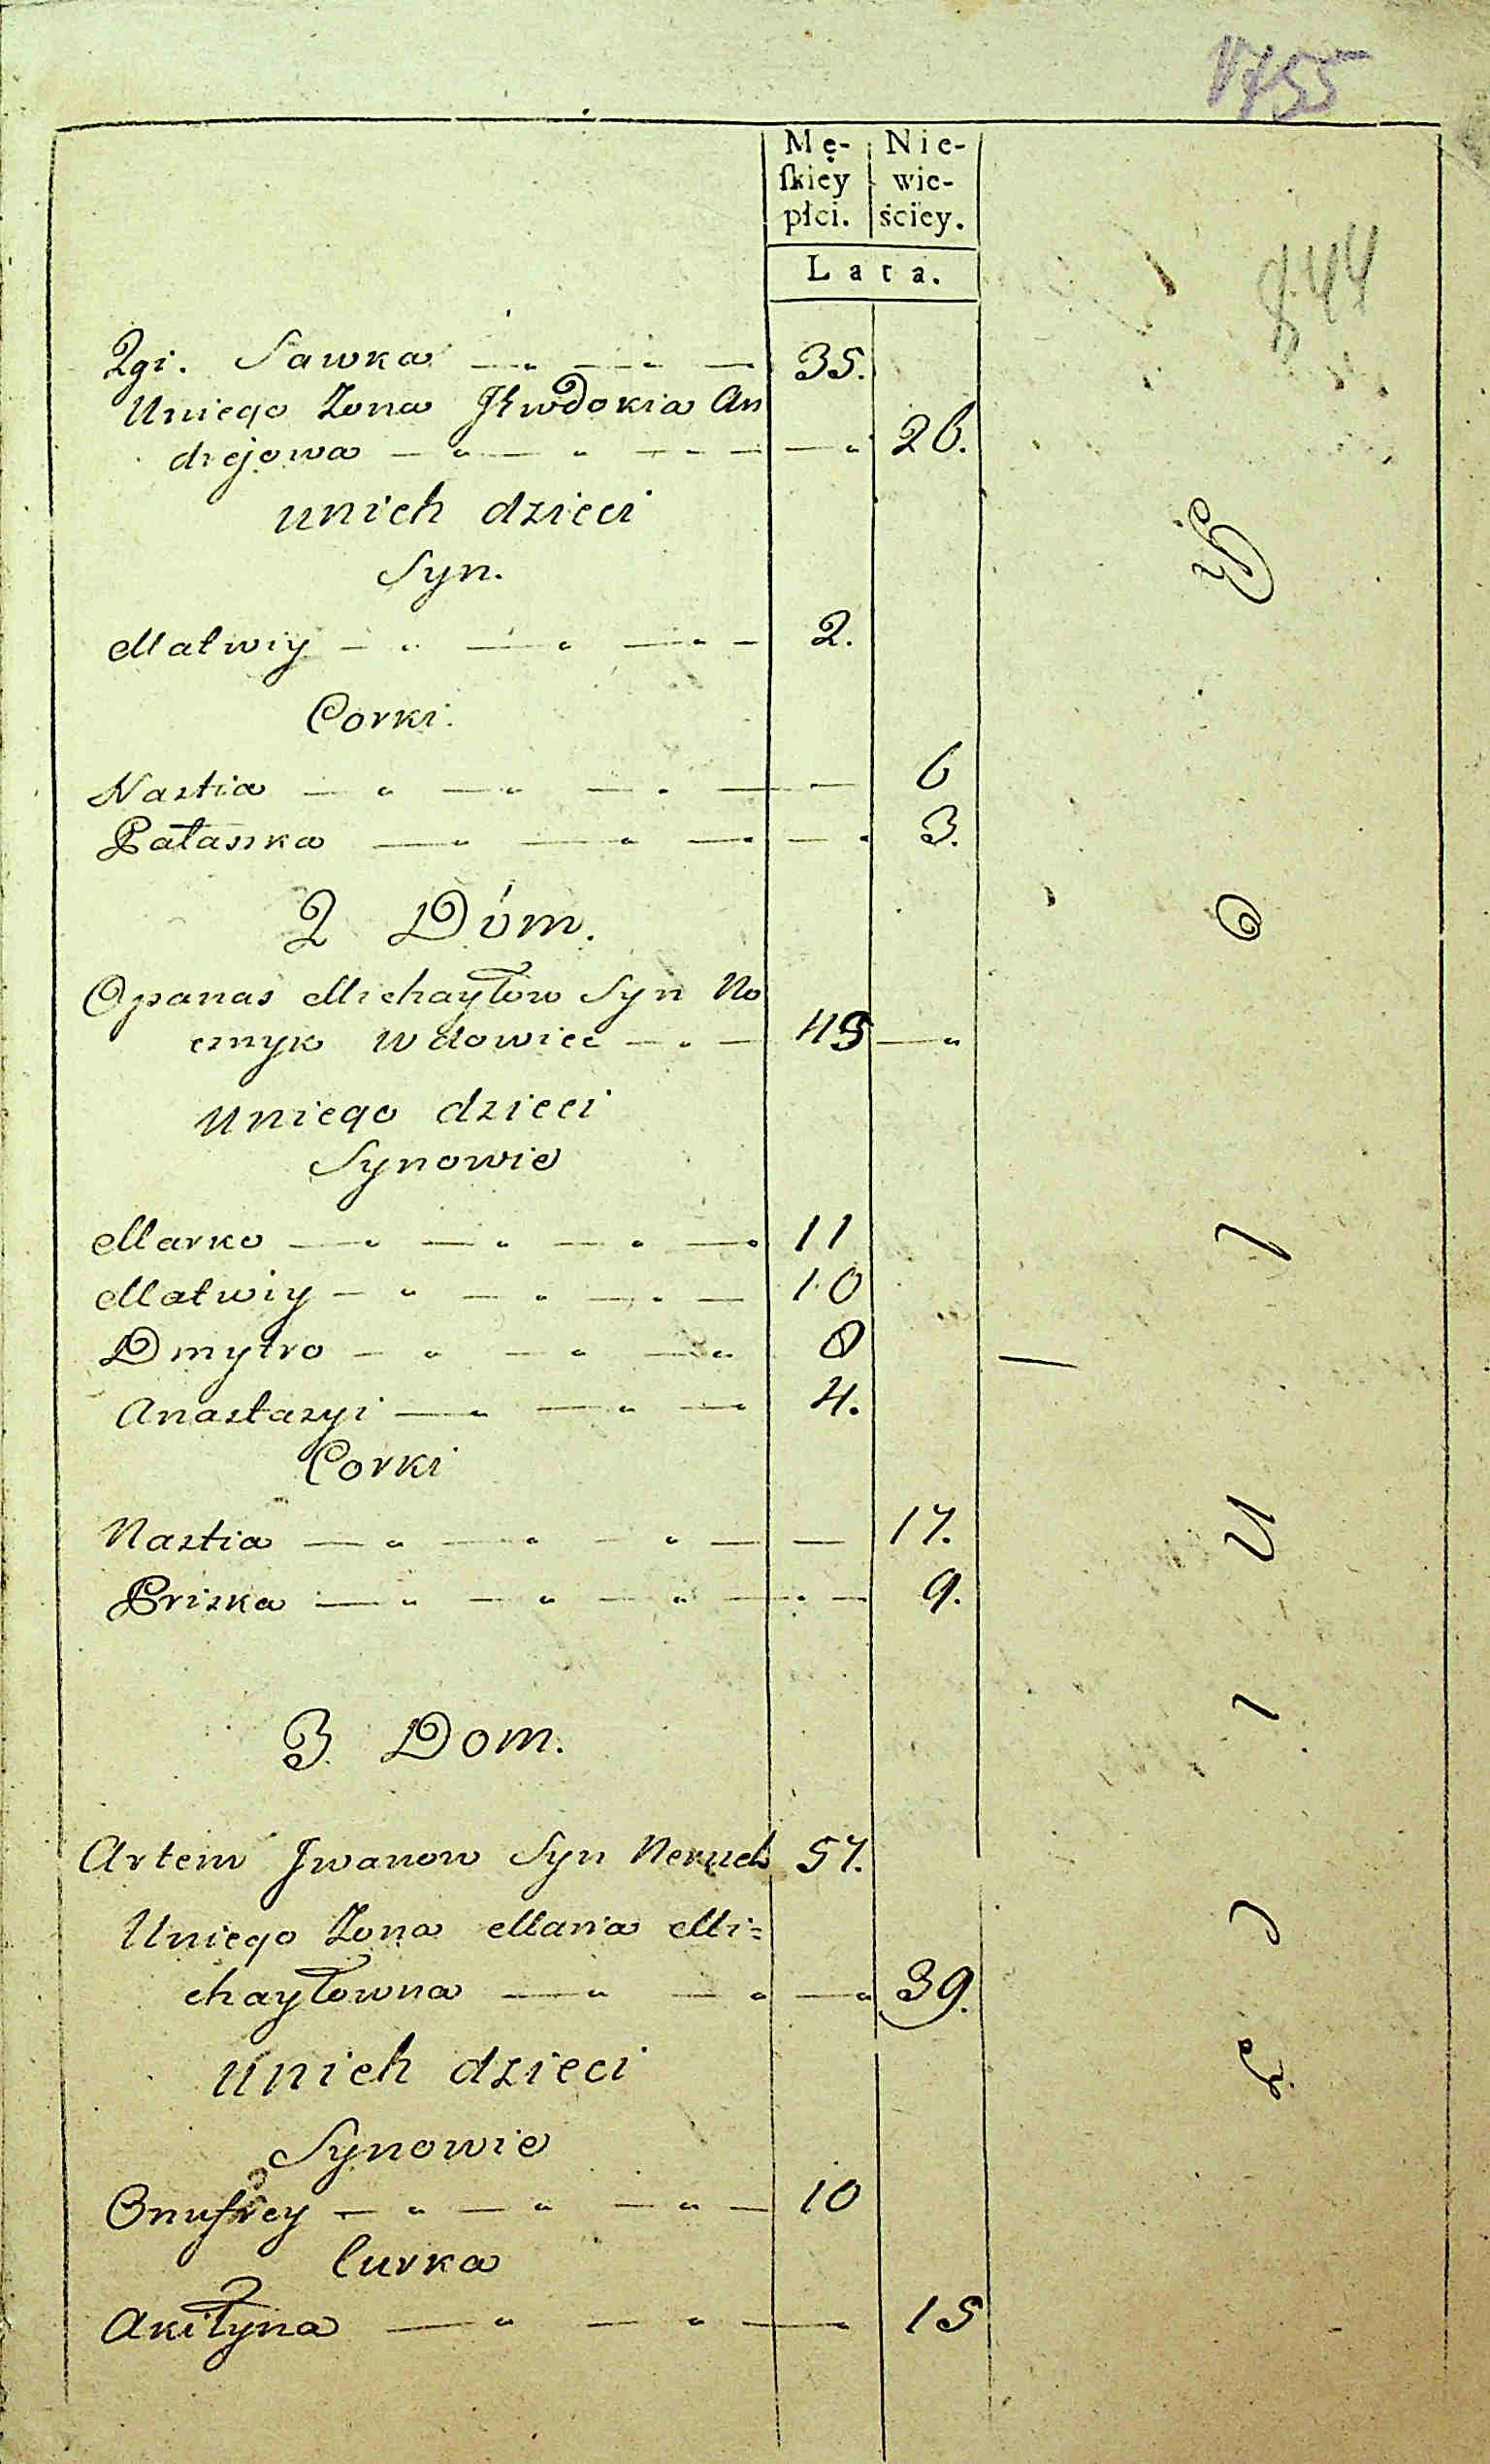 1755
Mę-
skiey
płci.
Nie-
wie-
ściey.
Lata.
844
2gi. Sawka 35.
Uniego Zona Jewdokia An
drejowa 26.
unich dzieci
Syn.
Matwiy 2.
Corki.
Nastia 6
Pałaszka 3.
2 Dóm.
Opanas Michayłow Syn No
czmyk Wdowiec 45
Uniego dzieci
Synowie
Marko 11
Matwiy 10
Dmytro 8
Anastazyi 4.
Corki
Nastia 17.
Priska 9.
3 Dom.
Artem Jwanow Syn 57.
Uniego Zona Maria Mi=
chayłowna 39.
unich dzieci
Synowie
Onufrey 10
Curka
Akiłyna 15